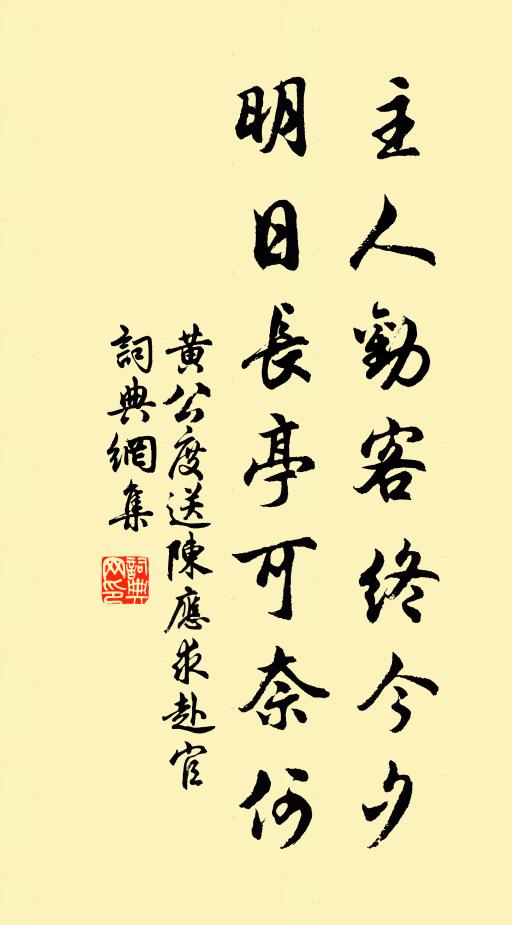 主人勸客終今夕
明日長亭可奈何
黄公度送陳應求赴官
詞典網集
詞典网印